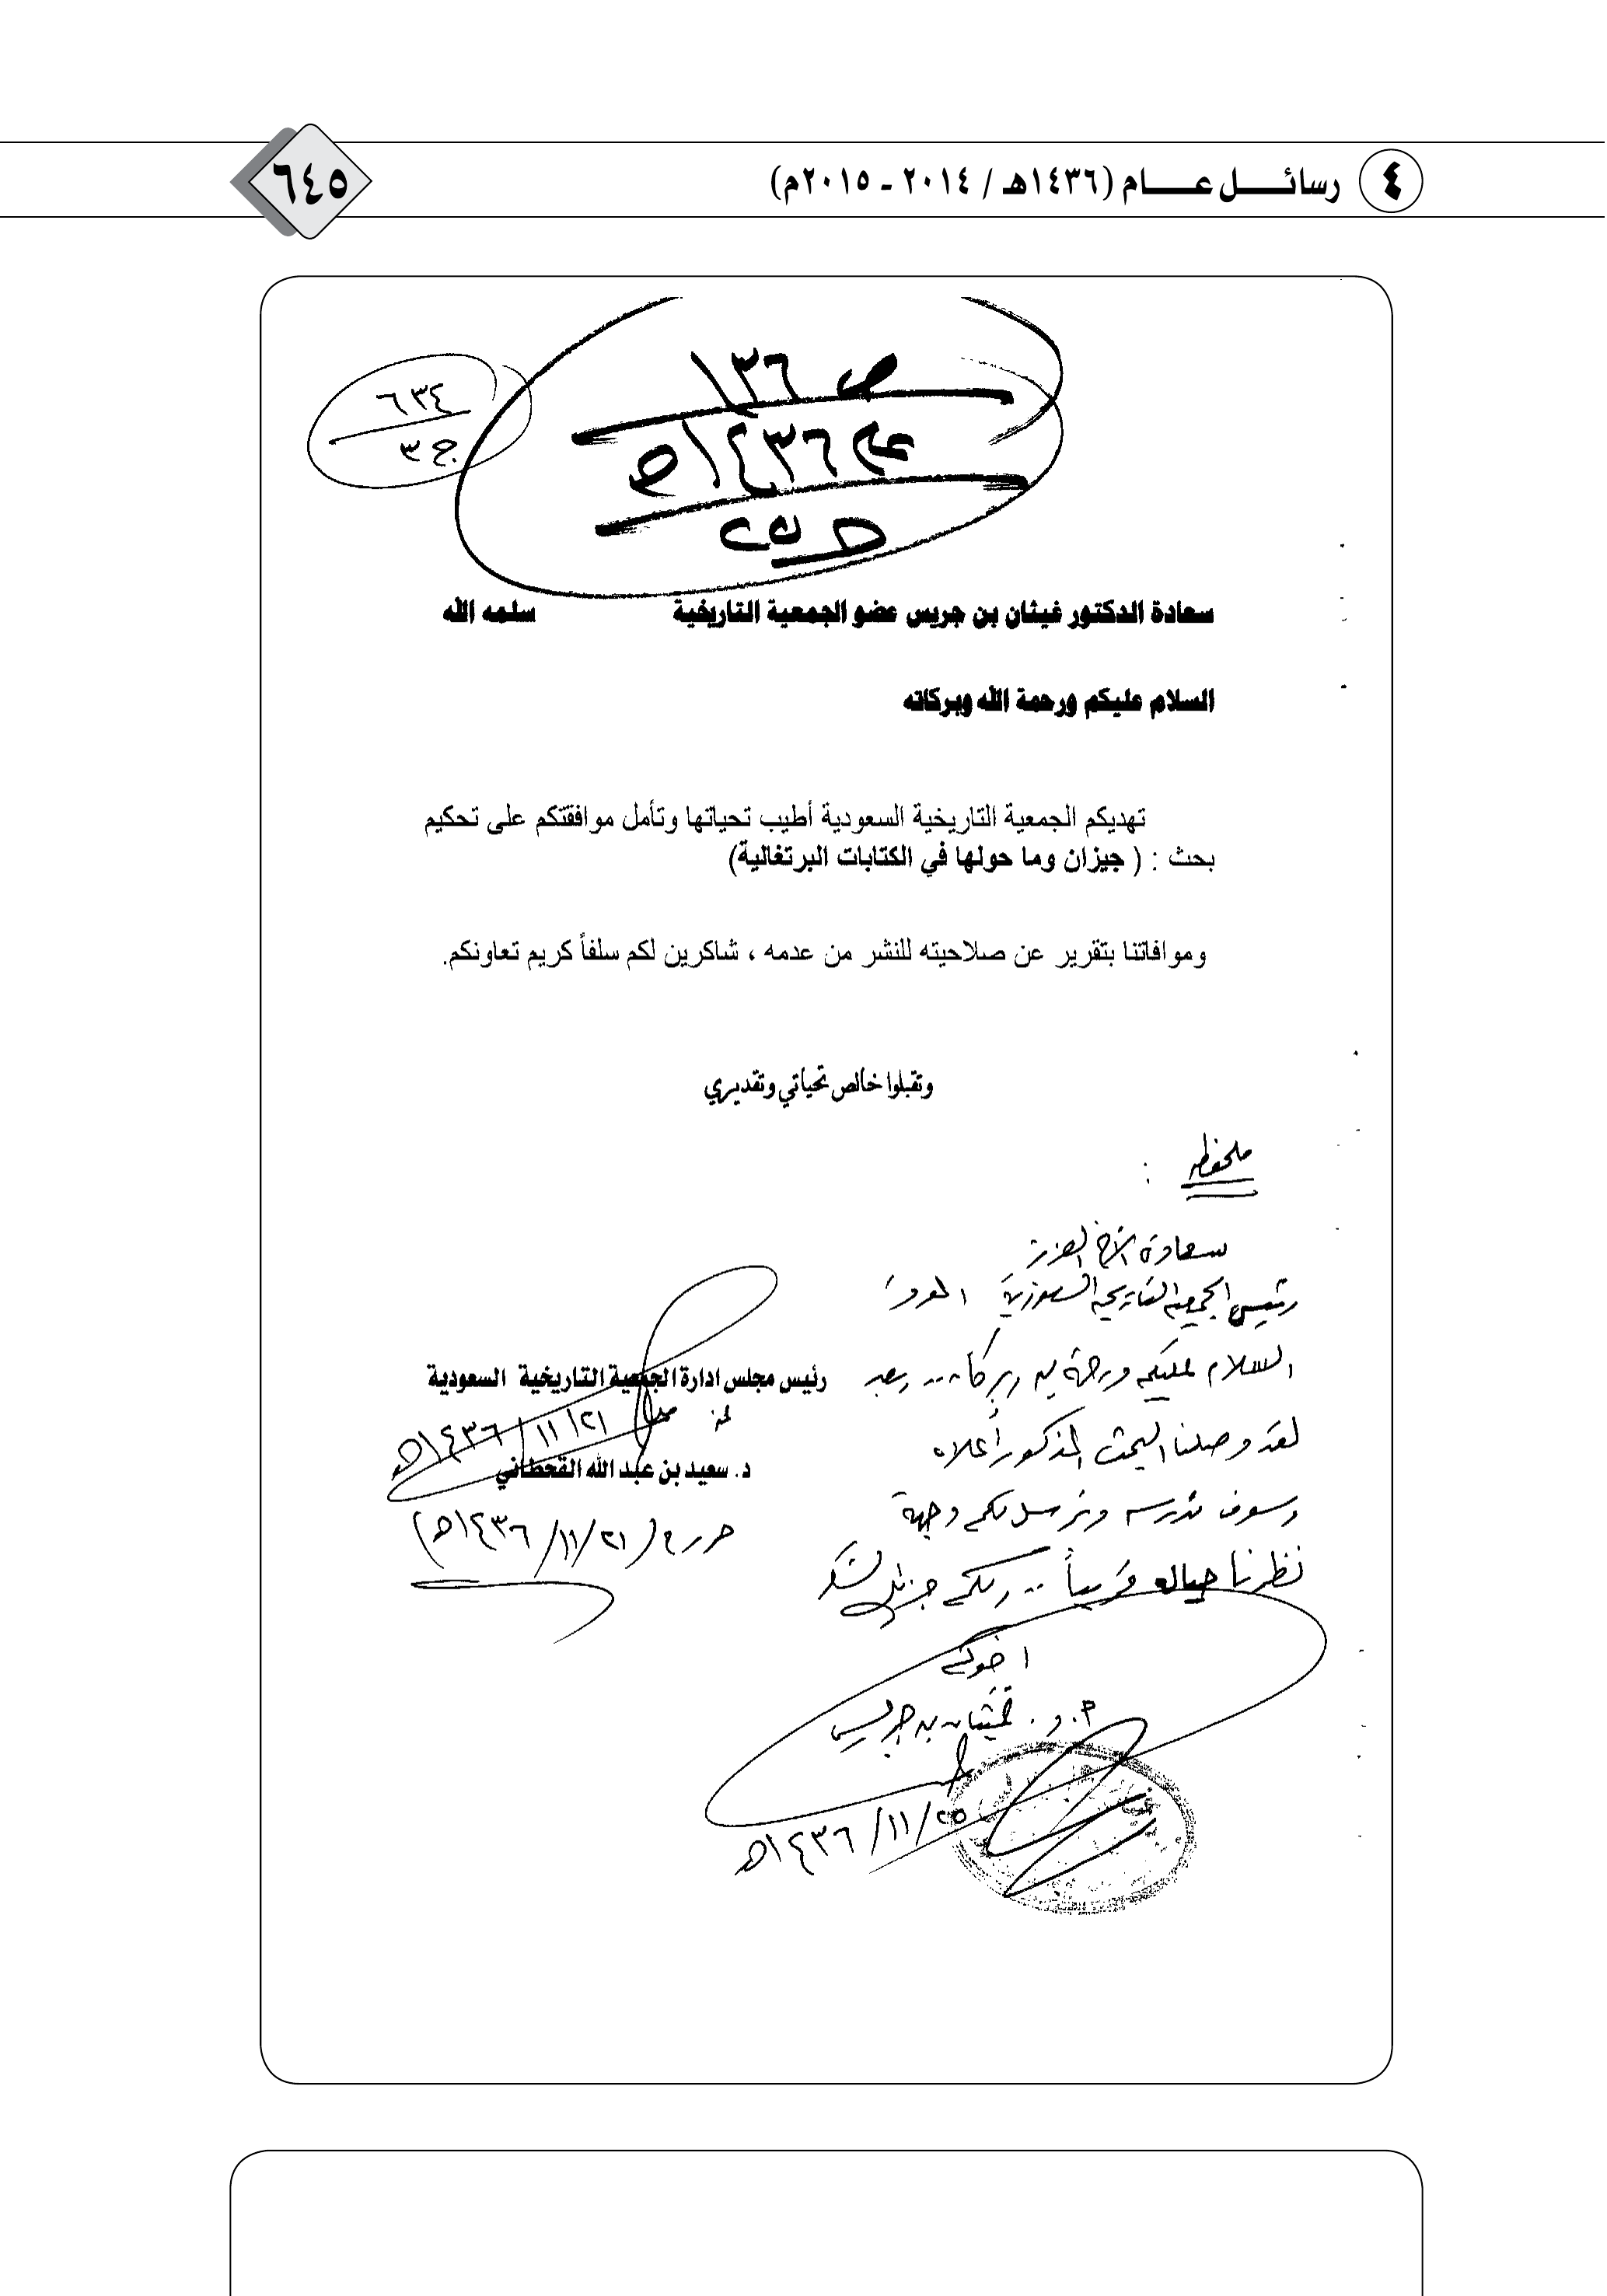 ٤ رسائـــل عــــام (١٤٣٦هـ / ٢٠١٤ - ٢٠١٥م)
٦٤٥
ص ١٣٦
عام ١٤٣٦هـ
٦٣٤
ج ٣
سعادة الدكتور غيثان بن جريس عضو الجمعية التاريخية سلمه الله
السلام عليكم ورحمة الله وبركاته
تهديكم الجمعية التاريخية السعودية أطيب تحياتها وتأمل موافقتكم على تحكيم
بحث : ( جيزان وما حولها في الكتابات البرتغالية)
وموافاتنا بتقرير عن صلاحيته للنشر من عدمه ، شاكرين لكم سلفاً كريم تعاونكم.
وتقبلوا خالص تحياتي وتقديري
رئيس مجلس ادارة الجمعية التاريخية السعودية
٢١/ ١١/ ١٤٣٦هـ
د. سعيد بن عبد الله القحطاني
حرر في (٢١/ ١١/ ١٤٣٦هـ)
ملحوظه :
سعادة الأخ العزيز
رئيس الجمعية التاريخية السعودية الموقر
السلام عليكم ورحمة الله وبركاته .. وبعد
لقد وصلنا البحث المذكور أعلاه
وسوف ندرسه ونرسل لكم وجهة
نظرنا حياله قريباً .. ولكم جزيل الشكر
اخوكم
أ.د. غيثان بن جريس
٢٥/ ١١/ ١٤٣٦هـ